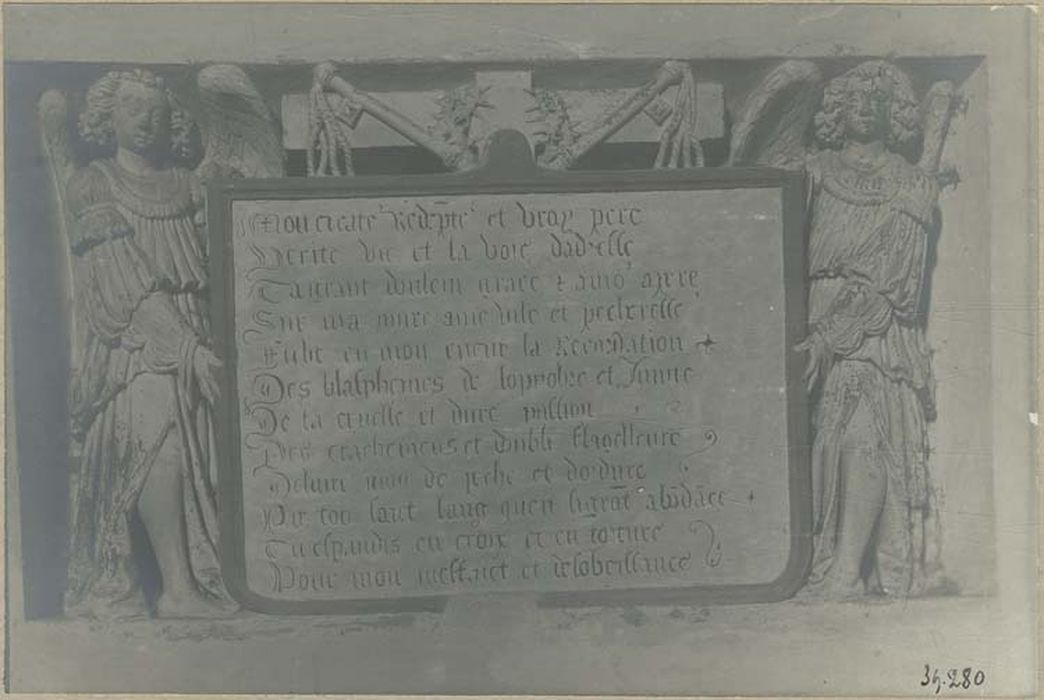 Mon createʳ Redēpteʳ et vray pere
Verite vie et la voie dadresse
grace & amoʳ apere
Sur ma mme vile et pecheresse
en mon cueur la Recordation
Des blasphemes de loprobre et Iniure
De ta cruelle et dure passion
Des crachemens et double flagelleure
moy de peche et dordure
Par ton sanc quen si grāt abōdāce
Tu espandis en croix et en torture
Pour mon meffaict et desobeissance
34.280